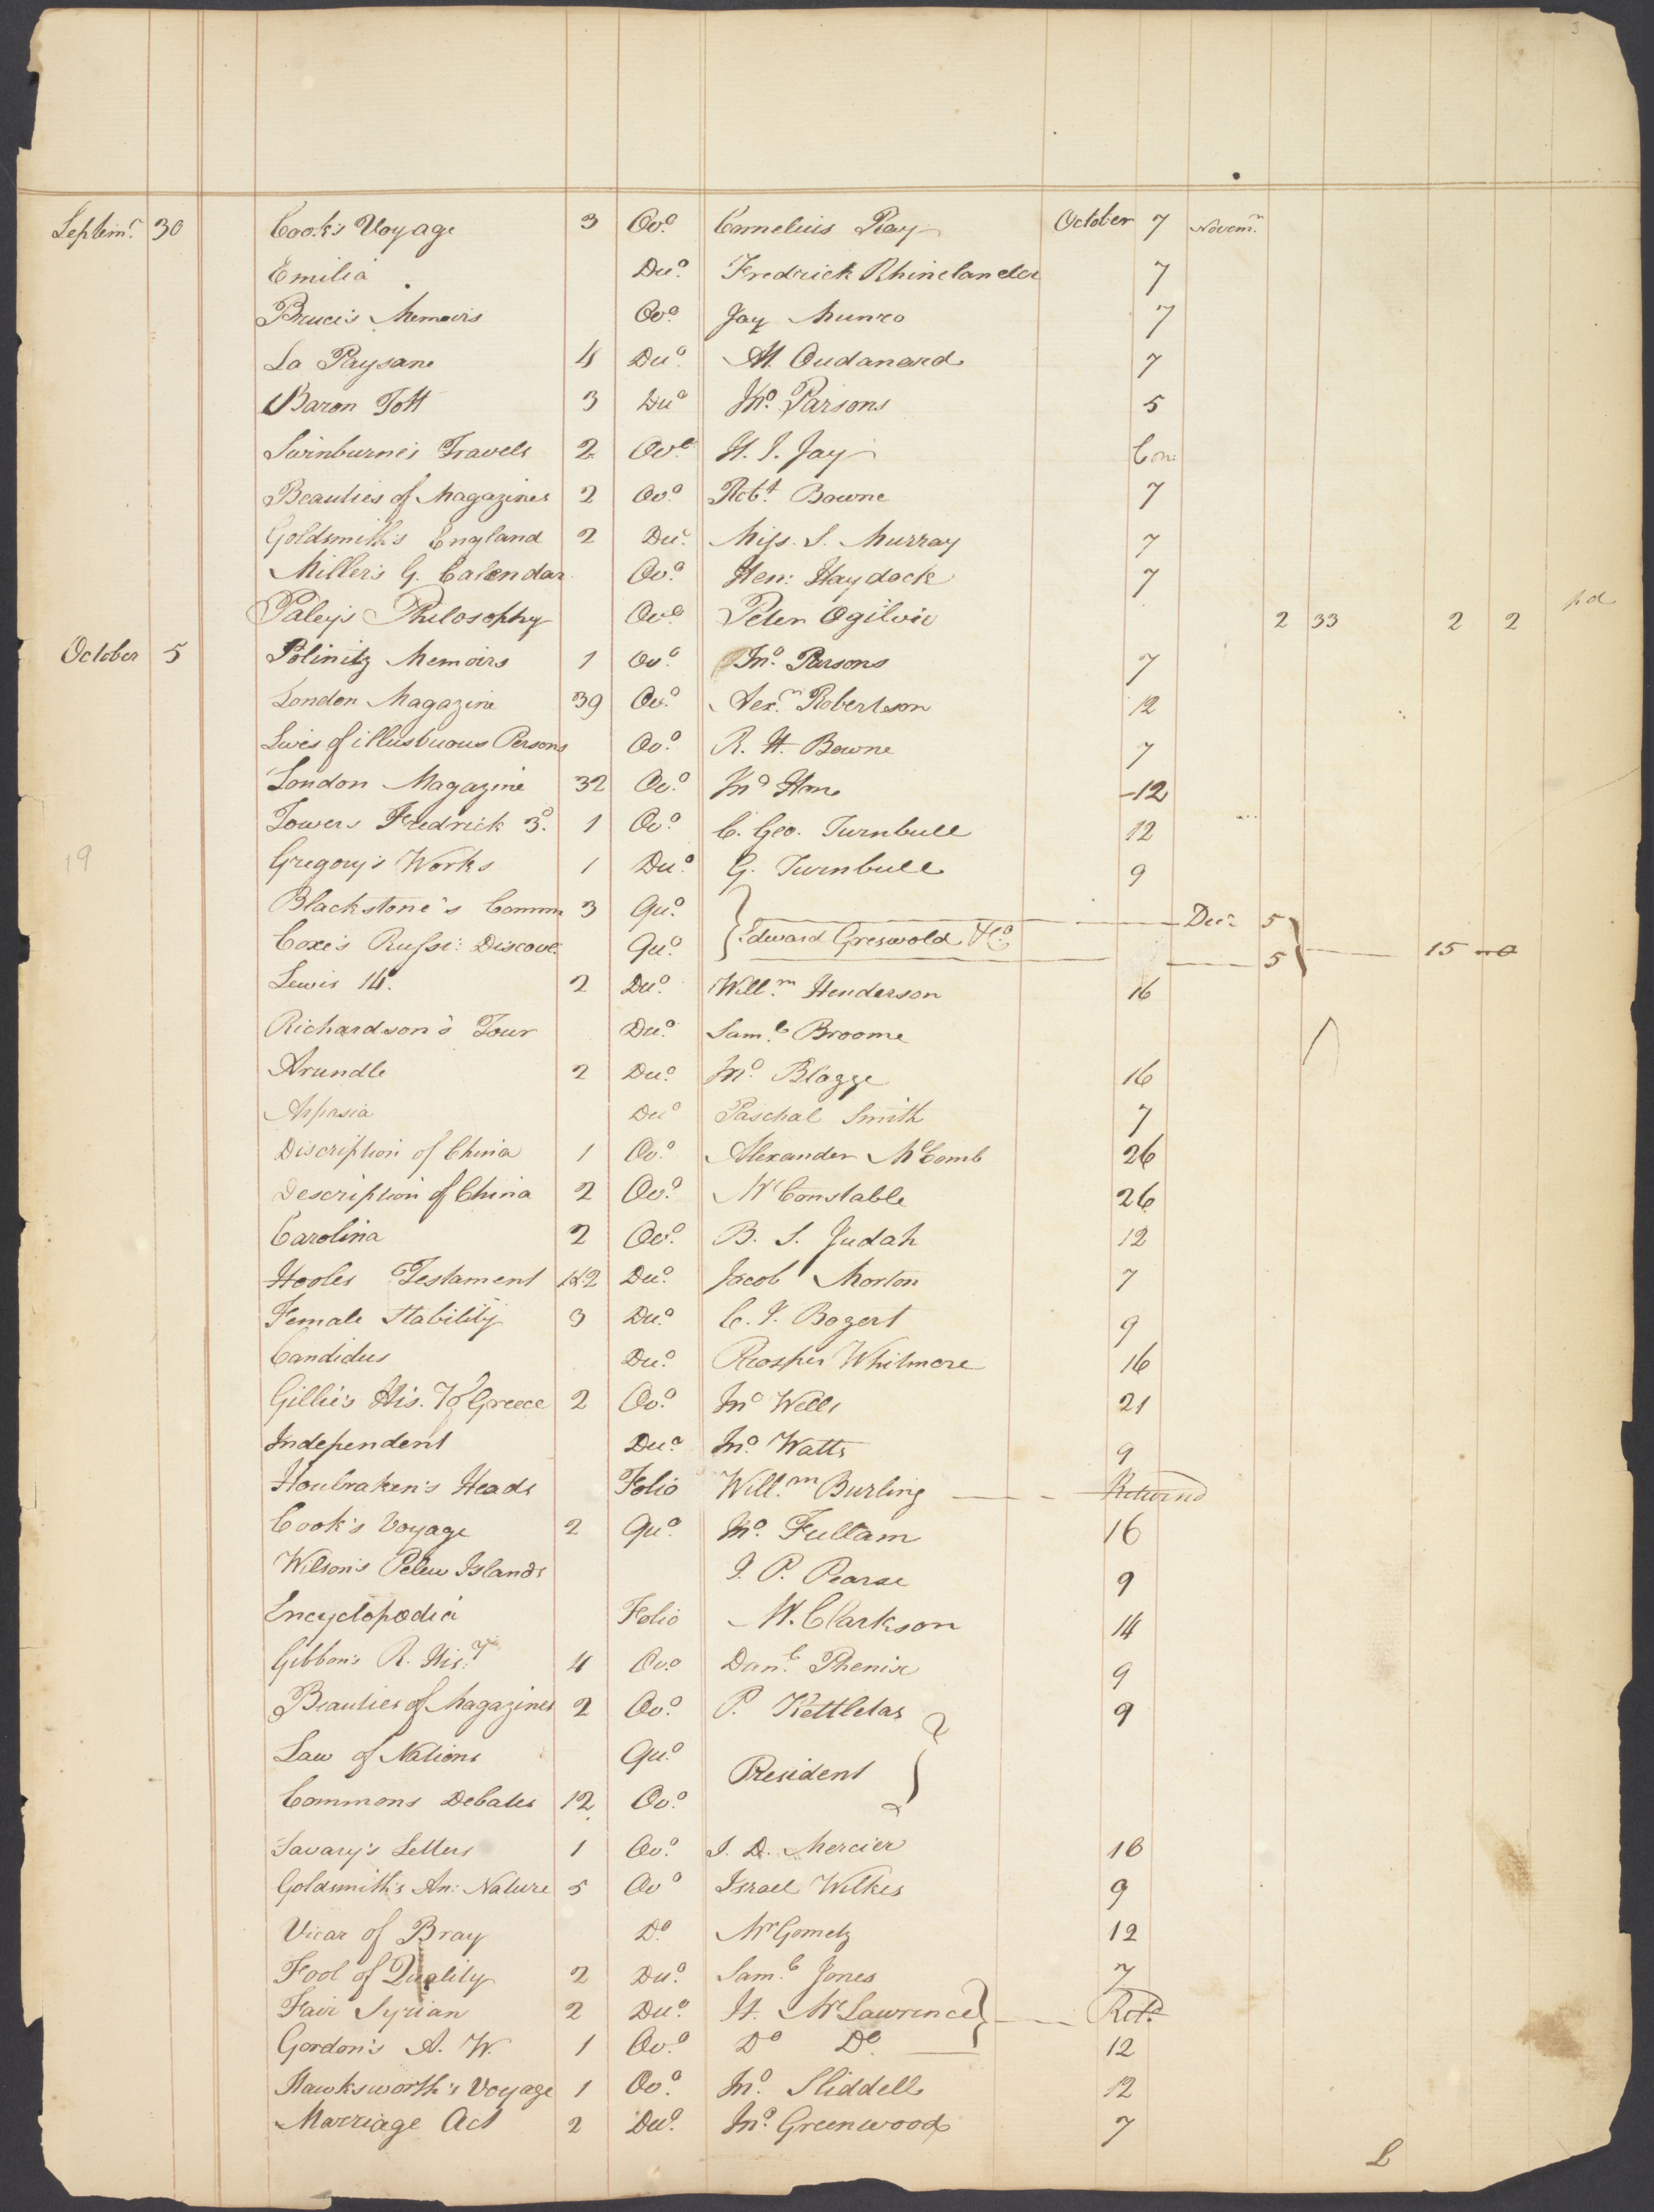 3
Septemr. 30 Cook's Voyage 3 Ovo. Cornelius Ray October 7 Novemr.
Emilia Duo. Fredrick Rhinelander 7
Bruce's Memoirs Ovo. Jay Munro 7
La Paysane 4 Duo. M. Oudanard 7
Baron Tott 3 Duo Jno. Parsons 5
Swinburne's Travels 2 Ovo. H. I. Jay Con:
Beauties of Magazines 2 Ovo. Robt. Bowne 7
Goldsmith's England 2 Duo. Miss. S. Murray 7
Miller's G. Calendar Ovo. Hen: Haydock 7
Paley's Philosophy Ovo. Peter Ogilvie 2 33 2 2 pd
October 5 Polinitz Memoirs 1 Ovo. Jno. Parsons 7
London Magazine 39 Ovo. Alexr. Robertson 12
Lives of illustruous Persons Ovo. R. H. Bowne 7
London Magazine 32 Ovo. Jno Hone 12
Towers Fredrick 3d. 1 Ovo. C. Geo. Turnbull 12
19 Gregory's Works 1 Duo. G. Turnbull 9
Blackstone's Comm 3 Quo. Decr. 5
Edward Greswold & Co.
Coxe's Russi: Discove: Quo. 5 15 0
Lewis 14. 2 Duo. Willm. Henderson 16
Richardson's Tour Duo. Saml. Broome
Arundle 2 Duo. Jno. Blagge 16
Aspasia Duo Paschal Smith 7
Discription of China 1 Ovo. Alexander McComb 26
Description of China 2 Ovo. Wm Constable 26
Carolina 2 Ovo. B. S. Judah 12
Hooles Testament 1&2 Duo. Jacob Morton 7
Female Stability 3 Duo. C. I. Bogert 9
Candidus Duo. Prosper Whitmore 16
Gillie's His. Y of Greece 2 Ovo. Jno Wells 21
Independent Duo. Jno. Watts 9
Houbraken's Heads Folio Willm. Burling Returnd
Cook's Voyage 2 Quo. Jno. Fullam 16
Wilson's Pelew Islands I. P. Pearse 9
Encyclopædia Folio M. Clarkson 14
Gibbon's R. His:y 4 Ovo Danl. Phenix 9
Beauties of Magazines 2 Ovo. P. Kettletas 9
Law of Nations Quo.
President
Commons Debates 12 Ovo.
Savary's Letters 1 Ovo. I. D. Mercier 16
Goldsmith's An: Nature 5 Ovo Israel Wilkes 9
Vicar of Bray Do. Mr Gometz 12
Fool of Quality 2 Duo. Saml. Jones 7
Fair Syrian 2 Duo. H. McLawrence Retd.
Gordon's A. W. 1 Ovo. Do Do. 12
Hawksworth's Voyage 1 Ovo. Jno. Sliddell 12
Marriage Act 2 Duo. Jno. Greenwood 7